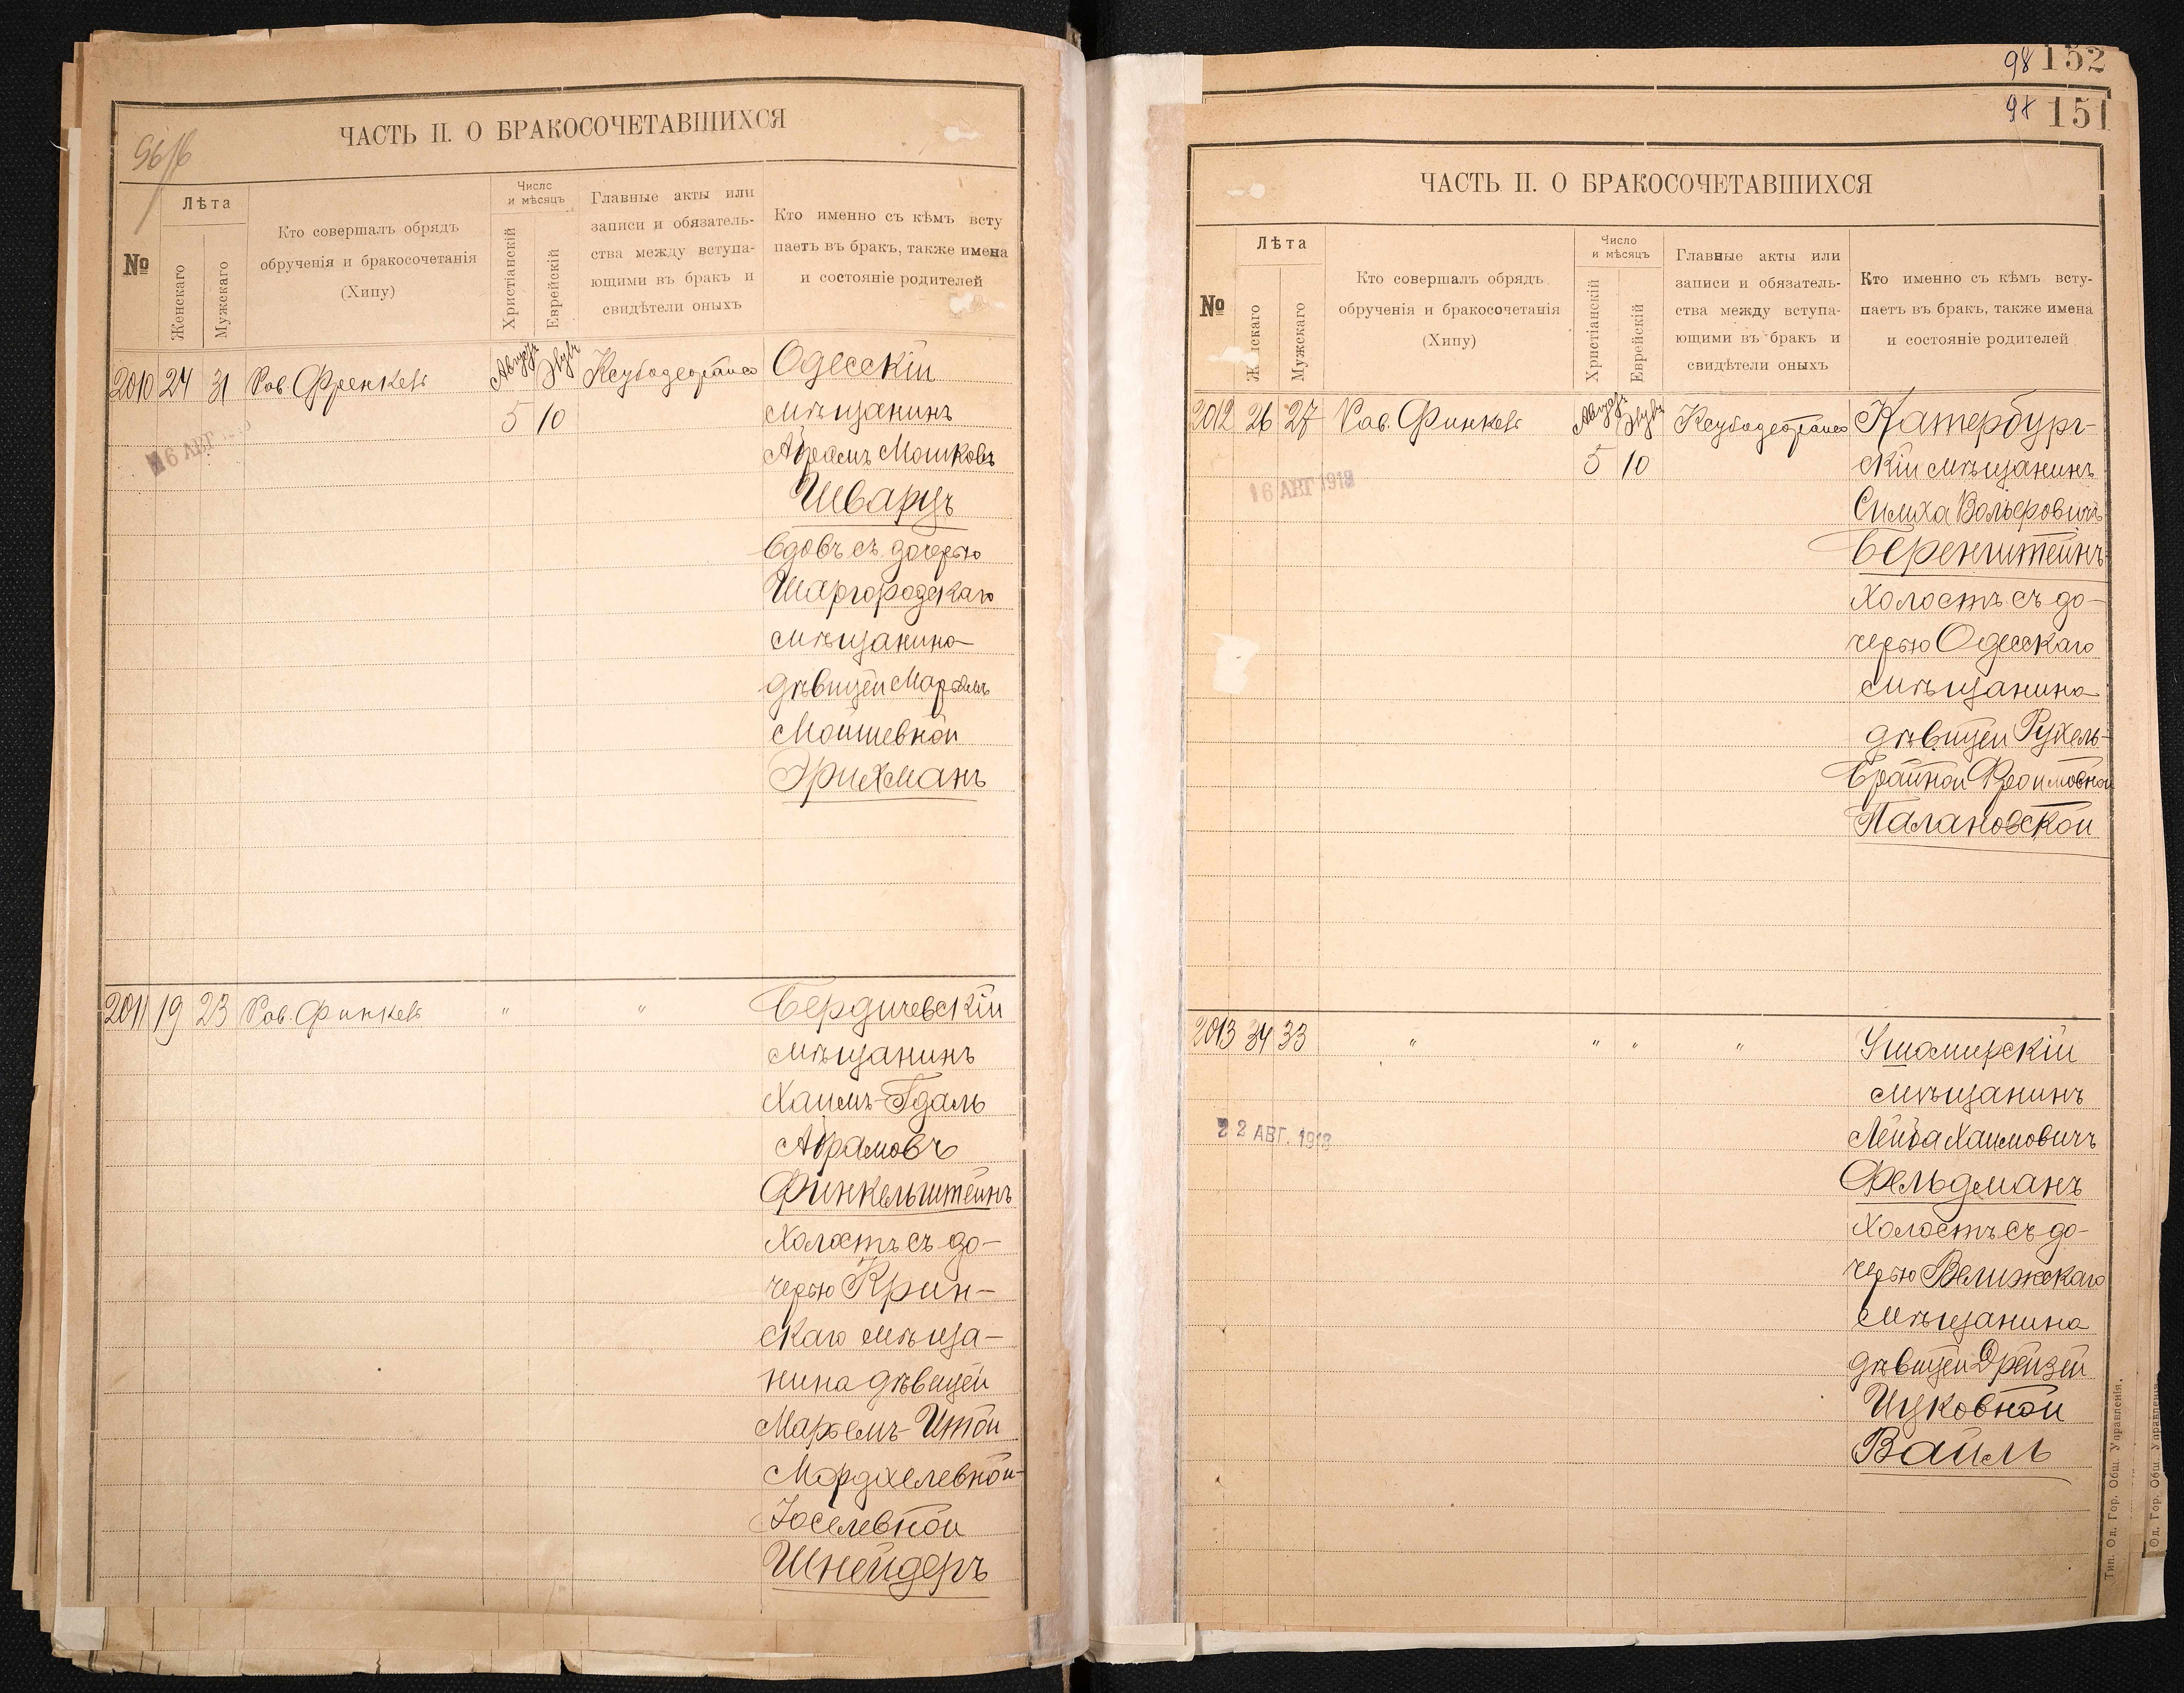 ЧАСТЬ II. О БРАКОСОЧЕТАВШИХСЯ
№
Лѣта
Женскаго
Мужскаго
Кто совершалъ обрядъ
обрученія и бракосочетанія
(Хипу)
Число
и мѣсяцъ
Христіанскій
Еврейскій
Главные акты или
записи и обязатель-
ства между вступа-
ющими въ бракъ и
свидѣтели оныхъ
Кто именно съ кѣмъ всту
паетъ въ бракъ, также имена
и состояніе родителей
2010 24 31 Рав. Френкель
5 10
6 АВГ
Одесскій
мѣщанинъ
Абрамъ Мошковъ
Шварцъ
вдовъ съ дочерью
Шаргородскаго
мѣщанина
дѣвицей Марьямъ
Мойшевной
Эрихманъ
2011 19 23 Рав. Финкель " "
Бердичевскій
мѣщанинъ
Хаимъ-Гдаль
Абрамовъ
Финкельштейнъ
холостъ съ до-
черью Крин-
скаго мѣща-
нина дѣвицей
Марьемъ-Итой
Мордхелевной-
Іоселевной
Шнейдеръ
98 152
98 151
ЧАСТЬ II. О БРАКОСОЧЕТАВШИХСЯ
№
Лѣта
Мужскаго
Кто совершалъ обрядъ
обрученія и бракосочетанія
(Хипу)
Число
и мѣсяцъ
Христіанскій
Еврейскій
Главные акты или
записи и обязатель-
ства между вступа-
ющими въ бракъ и
свидѣтели оныхъ
Кто именно съ кѣмъ всту-
паетъ въ бракъ, также имена
и состояніе родителей
2012 26 27 Рав. Финкель
5 10
16 АВГ 1918
Катербург-
скій мѣщанинъ
Симха Вольфовичъ
Беренштейнъ
холостъ съ до-
черью Одесскаго
мѣщанина
дѣвицей Рухель-
Брайной Фроимовной
Палановской
2013 34 33 " " " "
22 АВГ. 1918
Ушомирскій
мѣщанинъ
Лейба Хаимовичъ
Фельдманъ
холостъ съ до-
черью Велижскаго
мѣщанина
дѣвицей Дрейзей
Ицковной
Вайль
Тип. Од. Гор. Общ. Управленія.
Од. Гор. Общ. Управленія.